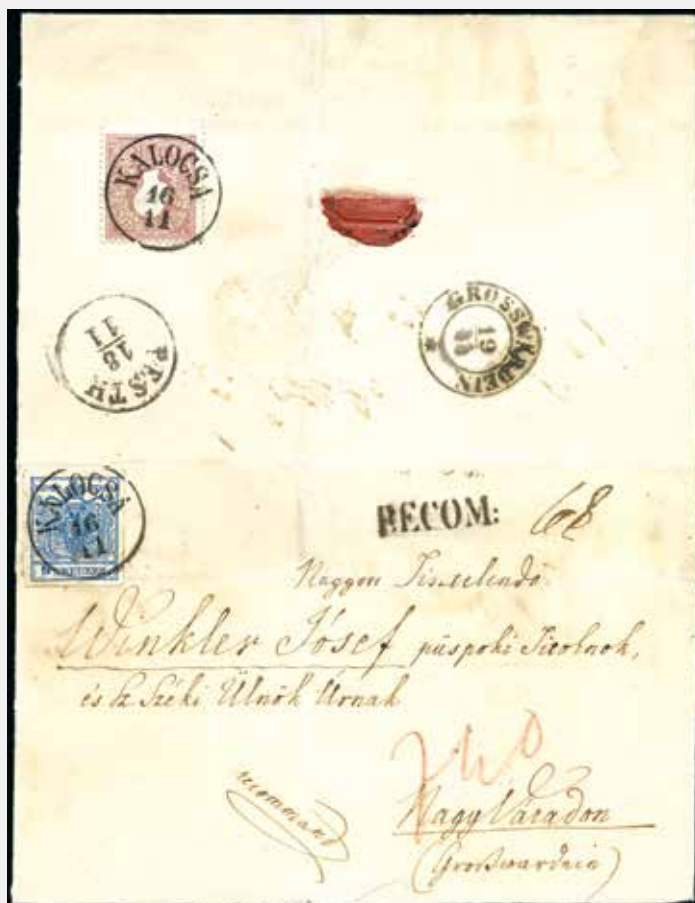 KALOCSA
16
11
PESTH
18
11
GROSSWARDEIN
19
KALOCSA
16
11
9 KREUZER
RECOM: 68
Nagyon Tisztelendő
Winkler Jósef püspöki Titolnok,
és Sz Széki Ülnök Úrnak
recommand
Nagy Váradon
(Großwardein)